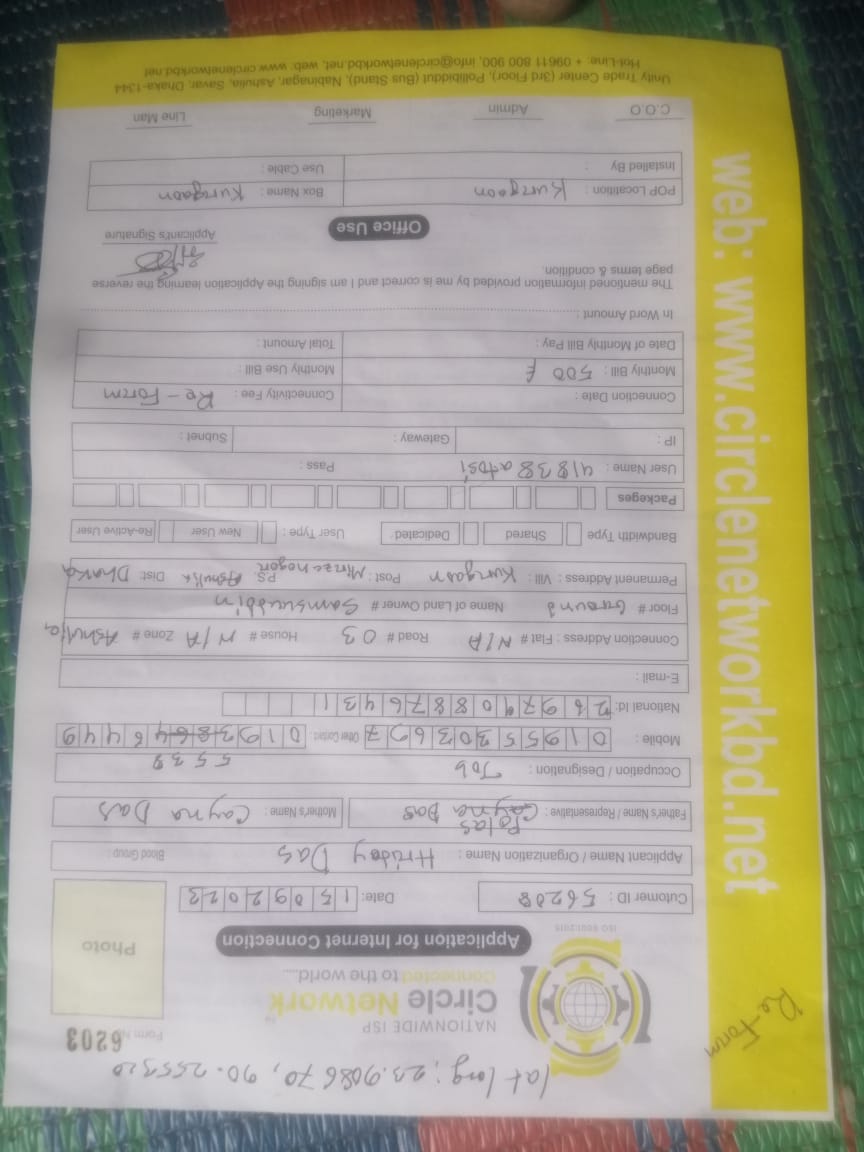 lat long: 23.908670, 90.255320
Re-Form
NATIONWIDE ISP
Circle Network
Connected to the world....
Form No 6203
ISO 9001:2015
Application for Internet Connection
Photo
Cutomer ID : 56208
Date: 15092023
Applicant Name / Organization Name : Hriday Das
Blood Group :
Polas
Father's Name / Representative : Cayna Das
Mother's Name : Cayna Das
Occupation / Designation : Job
5539
Mobile : 01955303697
Other Contact : 01923864 6449
National Id: 2697908876431
E-mail :
Connection Address : Flat # N/A Road # 03 House # N/A Zone # Ashulia
Floor # Ground Name of Land Owner # Samsuddin
Permanent Address : Vill: Kurgaon Post : Mirzanagar P.S. Ashulia Dist: Dhaka
Bandwidth Type Shared Dedicated User Type : New User Re-Active User
Packeges
User Name : 41838atdsi Pass :
IP : Gateway : Subnet :
Connection Date : Connectivity Fee : Re-Form
Monthly Bill : 500 ৳ Monthly Use Bill :
Date of Monthly Bill Pay : Total Amount :
In Word Amount :
The mentioned information provided by me is correct and I am signing the Application learning the reverse
page terms & condition.
Applicant's Signature
Office Use
POP Locatition : Kurgaon Box Name : Kurgaon
Installed By : Use Cable :
C.O.O Admin Marketing Line Man
Unity Trade Center (3rd Floor), Pollibiddut (Bus Stand), Nabinagar, Ashulia, Savar, Dhaka-1344
Hot-Line: + 09611 800 900, info@circlenetworkbd.net, web: www.circlenetworkbd.net
web: www.circlenetworkbd.net